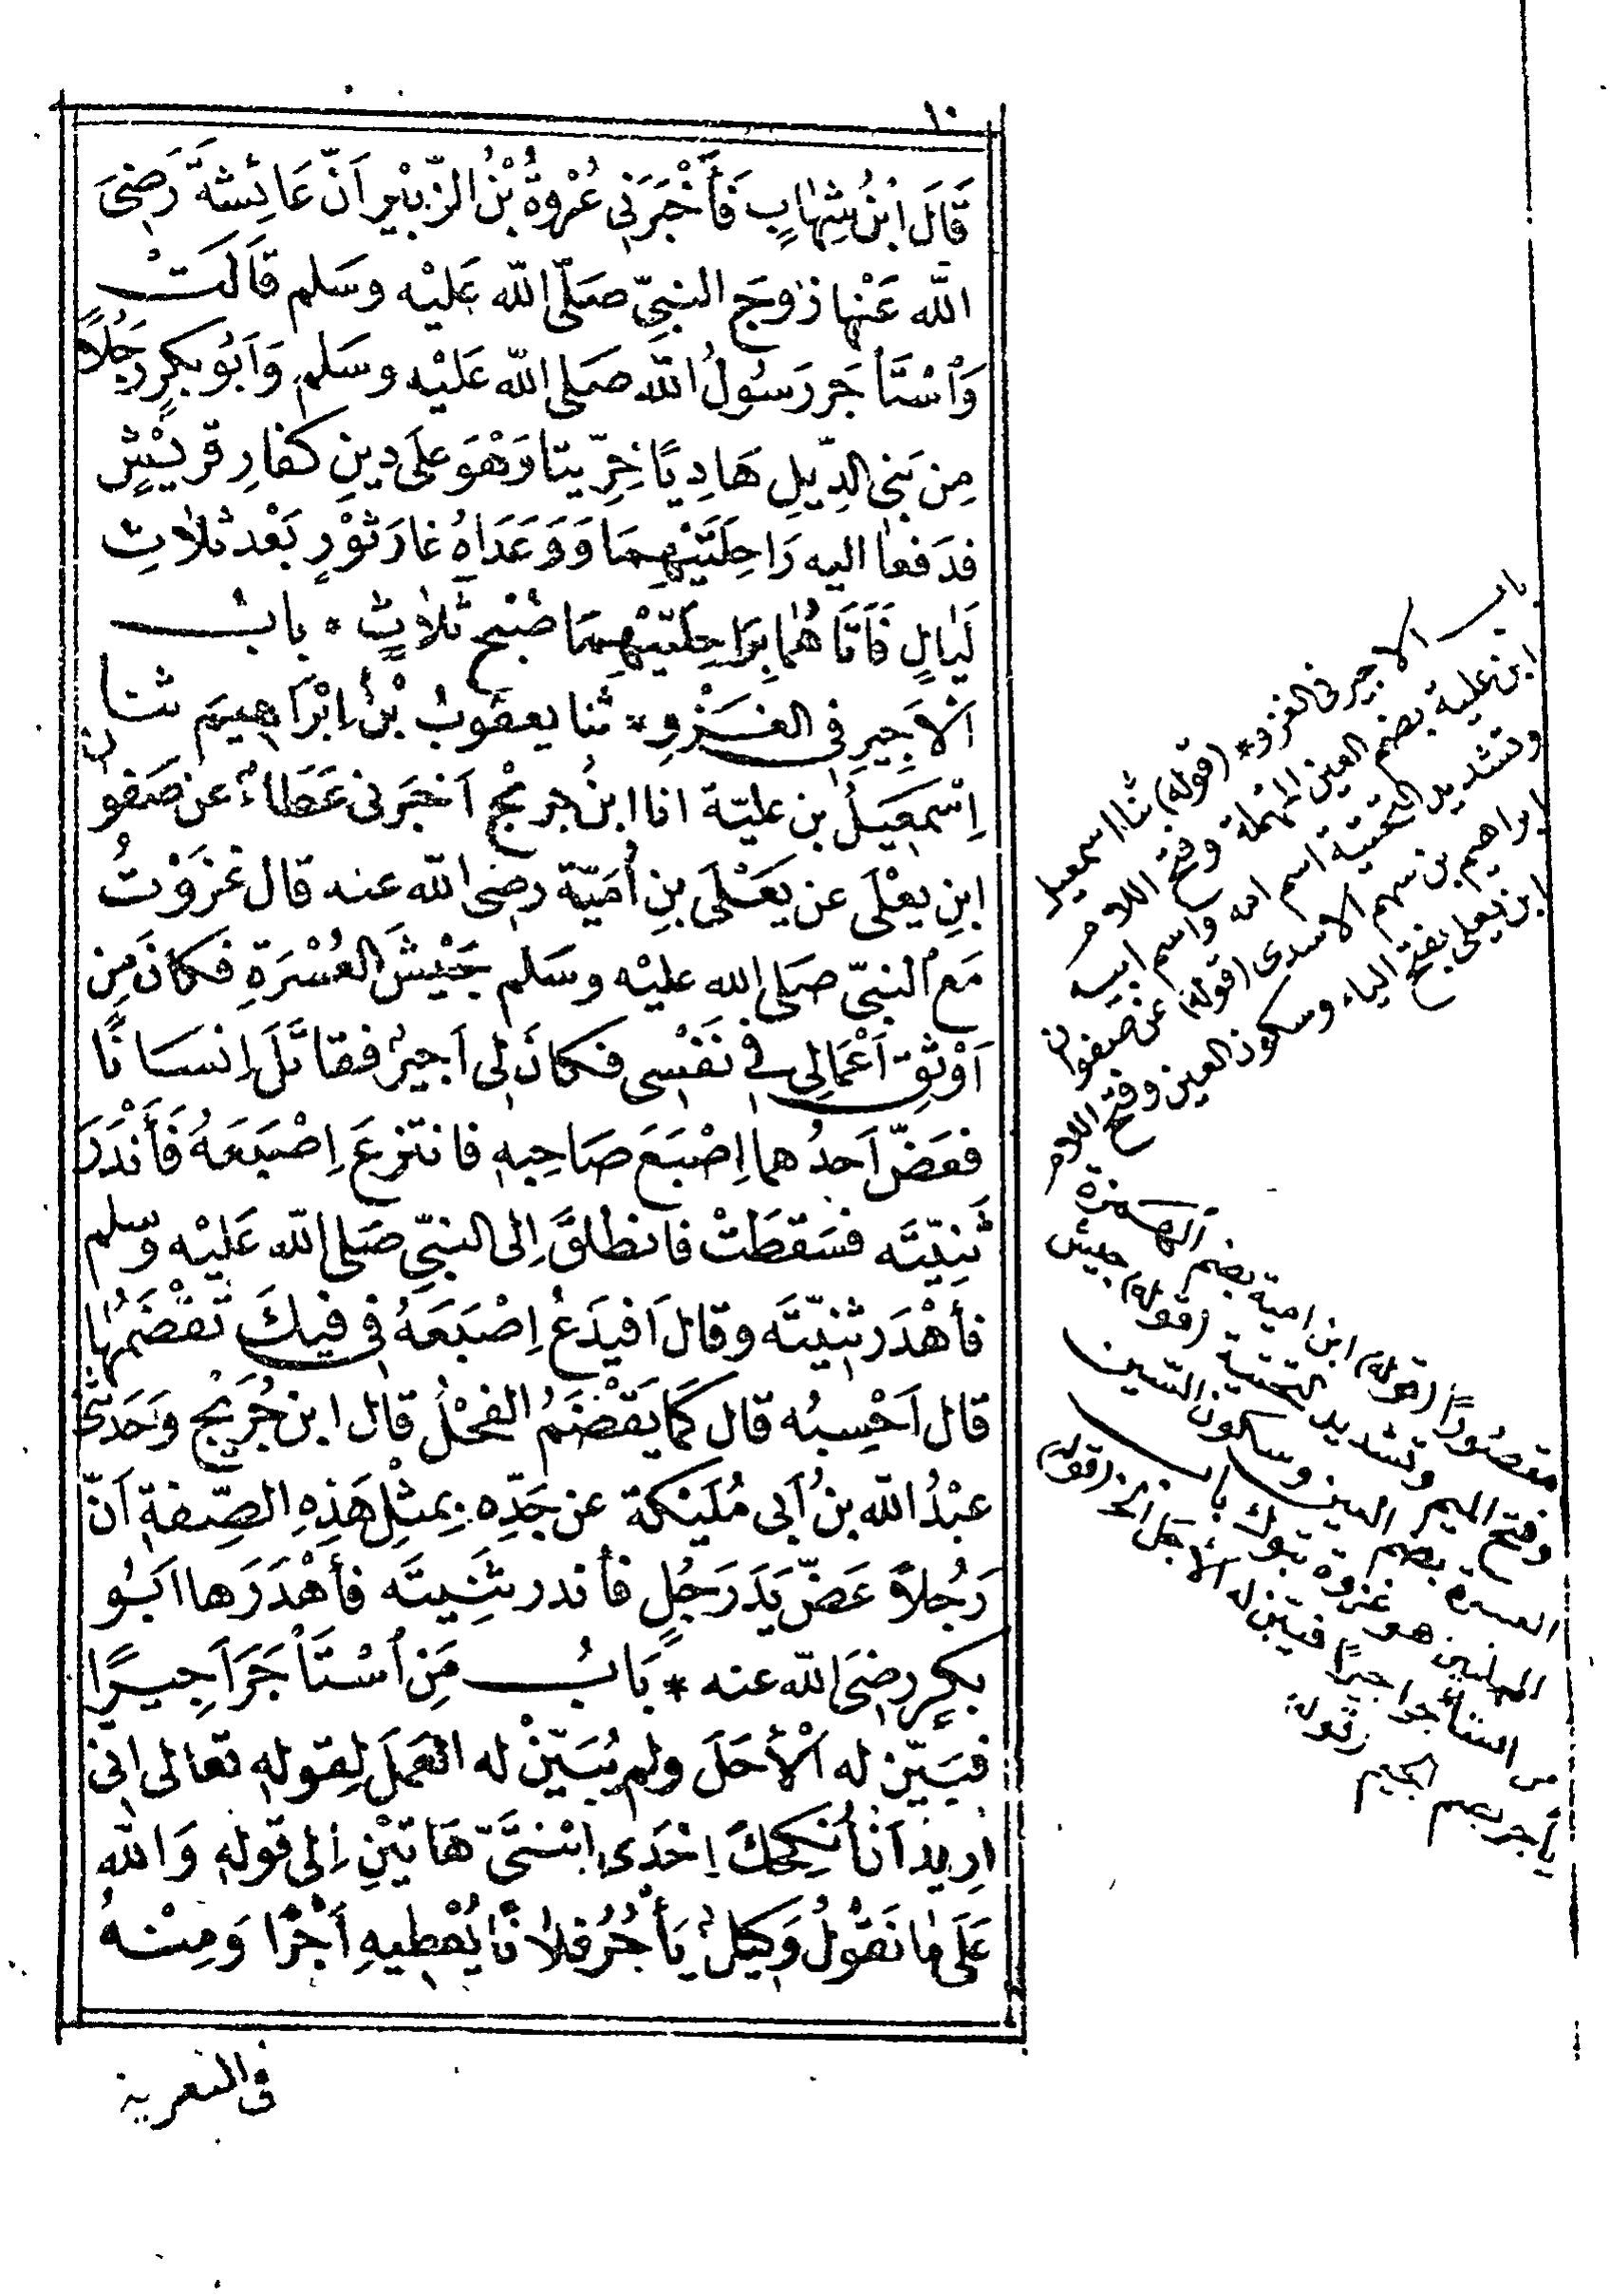 ١٠
قَالَ ابْنُ شِهَابٍ فَأَخْبَرَنِي عُرْوَةُ بْنُ الزُّبَيْرِ اَنَّ عَائِشَةَ رَضِيَ
اللّٰه عَنْها زَوجَ النبِيِّ صَلّى اللّٰه عَلَيْه وسَلم قَالَتْ
وَاسْتَأجَرَ رَسُولُ اللّٰه صَلى اللّٰه عَلَيْه وسَلم وَاَبُو بكرٍ رَجُلًا
مِن بَنِي الدِّيلِ هَادِيًا خِرِّيتا وَهْوَ علَى دِينِ كفارِ قريْشٍ
فدَفعا اليه رَاحِلَتَيْهِمَا وَوَعَدَاهُ غارَ ثَوْرٍ بَعْد ثلاثِ
لَيالٍ فَأَتَاهُما بِرَاحِلَتَيْهِمَا صُبْحَ ثَلاثٍ * بابُ
اَلْاَجِيرِ فِي الغَزْوِ * ثنا يعقوبُ بْنُ اِبْرَاهِيمَ ثنا
اِسْمٰعِيلُ بن عليّة انا ابنُ جريْج اَخبَرنى عَطاءٌ عن صَفوان
ابنِ يعْلَى عن يَعْلَى بنِ اُمَيّة رضى اللّٰه عنه قال غزَوْتُ
مَع النبيّ صَلى اللّٰه عليْه وسَلم جَيْشَ العُسْرَةِ فكانَ مِن
اَوْثَقِ اَعْمَالِي في نَفْسِى فكان لِى اَجيرٌ فقاتَلَ اِنسَانًا
فعَضَّ اَحدُهما اِصْبَعَ صَاحِبِه فانتزعَ اِصْبَعَهُ فَأَنْدَرَ
ثَنِيّتَه فسَقطَتْ فانطلقَ اِلى النبيِّ صَلى اللّٰه عَليْه وسلم
فأهْدَر ثنِيّتَه وقال اَفيَدَعُ اِصْبَعَهُ فِي فيكَ تَقْضَمُها
قال اَحْسِبُه قال كَمَا يَقْضَمُ الفحْلُ قال ابن جُرَيْج وَحَدثَنى
عبْدُ اللّٰه بنُ اَبى مُلَيْكة عن جَدِّه بِمثْلِ هَذِهِ الصِّفةِ اَنّ
رَجُلًا عَضَّ يَدَ رَجُلٍ فأندر ثَنِيتَه فأهْدَرَها ابَو
بكرٍ رضىَ اللّٰه عنه * بَابُ مَنِ اسْتَأجَرَ اَجِيرًا
فبَيّن له اَلْأَجَلَ ولم يُبَيِّنْ له العَمَلَ لِقوله تعالى انى
اريد اَنْ أُنكِحَكَ اِحْدَى ابْنَتَيَّ هَاتَيْنِ اِلى قوله وَاللّٰه
عَلَى مٰا نَقُولُ وَكِيلٌ يَأجُرُ فلَانًا يُعْطِيهِ أَجْرًا وَمِنْهُ
في التعزية
باب الاجير فى الغزو * (قوله) ثنا اسمعيل
ابن علية بضم العين المهملة وفتح اللام
وتشديد التحتية اسم امه واسم ابيه
ابراهيم بن سهم الاسدى (قوله) عن صفوان
ابن يعلى بفتح الياء وسكون العين وفتح اللام
مقصورًا (قوله) ابن امية بضم الهمزة
وفتح الميم وتشديد التحتية (قوله) جيش
العسرة بضم العين وسكون السين
المهملتين هو غزوة تبوك باب
من استأجر اجيرًا فبَيّن له الأجَل الخ (قوله)
يأجر بضم الجيم (قوله)